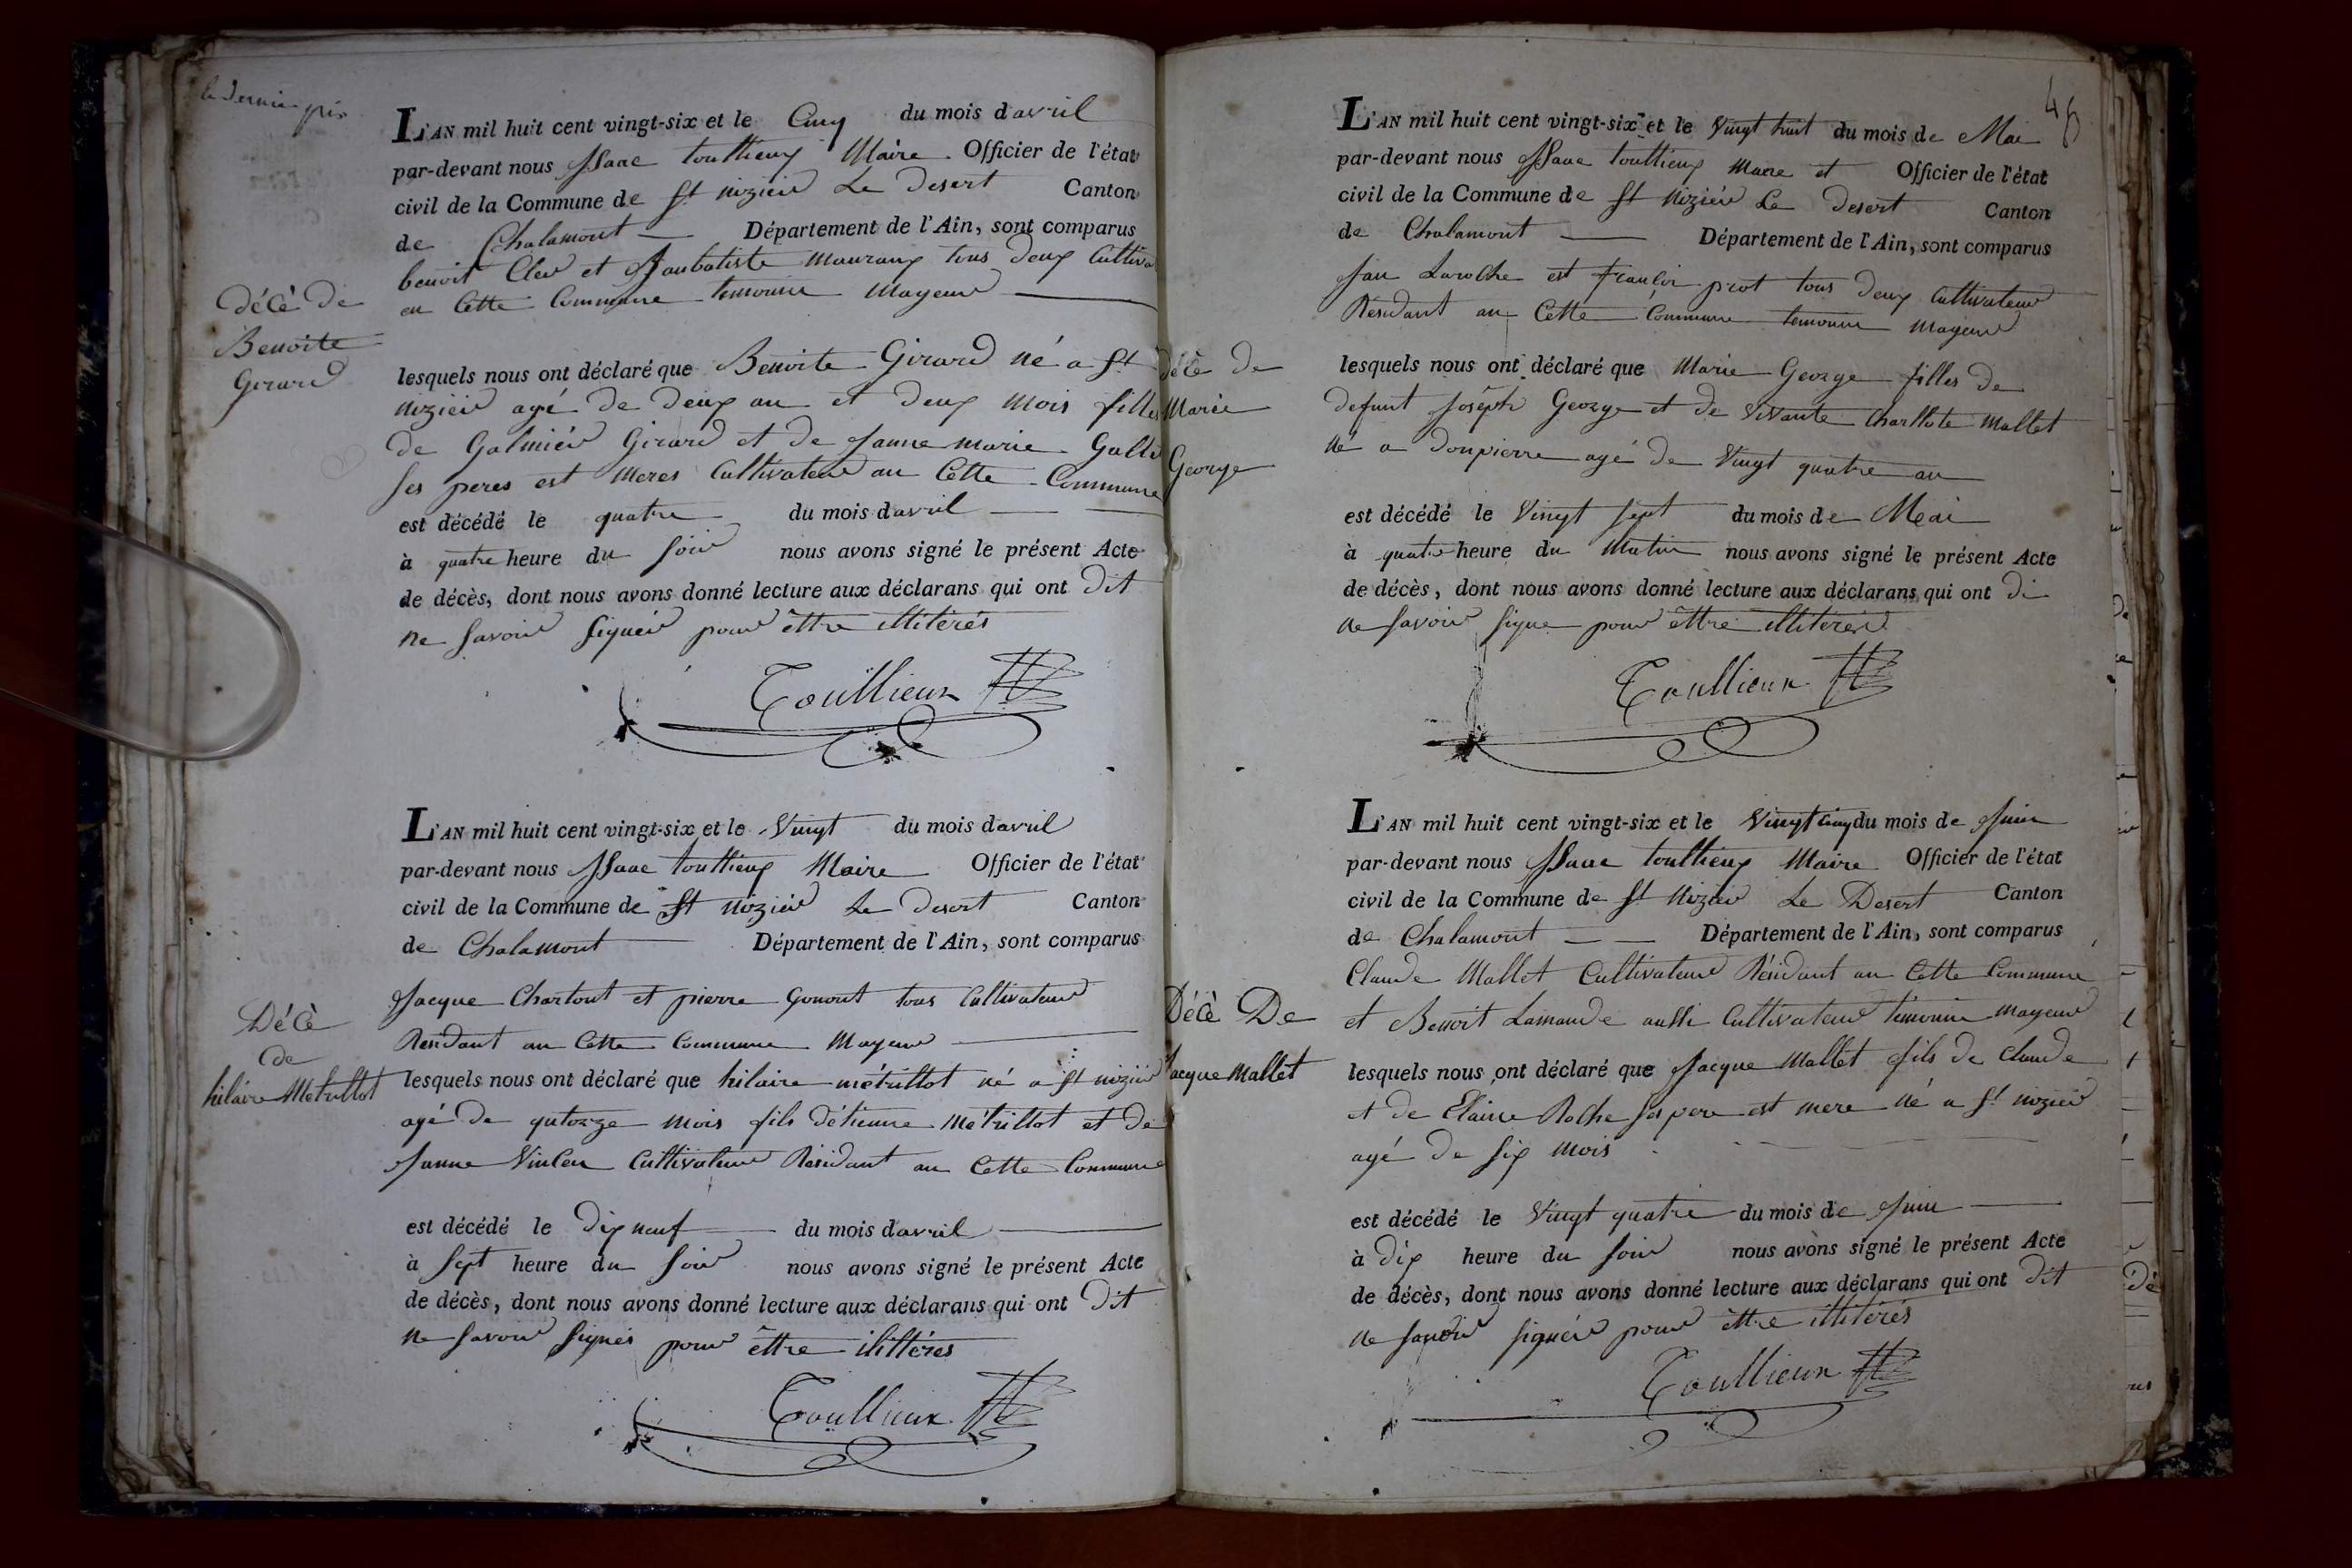 L'AN mil huit cent vingt-six et le Cinq du mois davril
par-devant nous Isaac touttieux Maire Officier de l'état
civil de la Commune de St nizieu Le Desert Canton
de Chalamont Département de l'Ain, sont comparus
benoit et Janbatiste tous deux Cultiva
en Cette Commune temouin Mayeur
Décè de
Benoite
Girard
lesquels nous ont déclaré que Benoite Girard né a St
nizieu agé de deux an et deux mois filles
de Galmiér Girard et de Janne marie
ses peres est meres Cultivateur an Cette Commune
est décédé le quatre du mois davril
à quatre heure du soir nous avons signé le présent Acte
de décès, dont nous avons donné lecture aux déclarans qui ont dit
ne savoir signér pour êttre illitérés
Toullieux
L'AN mil huit cent vingt-six et le Vingt du mois davril
par-devant nous Isaac touttieux Maire Officier de l'état
civil de la Commune de St nizieu Le Desert Canton
de Chalamont Département de l'Ain, sont comparus
Jacque Chartout et pierre Gonout tous Cultivateur
Résidant an Cette Commune Mayeur
Décè
de
hilaire Metrillot
lesquels nous ont déclaré que hilaire métrillot né a St nizieu
agé de qutorze mois fils détienne Métrillot et de
Janne Vincen Cultivateur Résidant an Cette Commune
est décédé le dix neuf du mois davril
à sept heure du soir nous avons signé le présent Acte
de décès, dont nous avons donné lecture aux déclarans qui ont dit
ne savoir signés pour êttre ilittéres
Toullieux
L'AN mil huit cent vingt-six et le Vingt huit du mois de Mai
par-devant nous Isaac touttieux Maire et Officier de l'état
civil de la Commune de St Nizieu Le Desert Canton
de Chalamont Département de l'Ain, sont comparus
Jan Laroche est françois pirot tous deux Cultivateur
Résidant an Cette Commune temouin mayeur
décè de
Marie
George
lesquels nous ont déclaré que Marie George filles de
defunt Joséph George et de Vivante Charllote Mallet
né a Donpierre agé de Vingt quatre an
est décédé le Vingt sept du mois de Mai
à quatre heure du Matin nous avons signé le présent Acte
de décès, dont nous avons donné lecture aux déclarans qui ont di
ne savoir signe pour êttre illitérér
Toullieux
L'AN mil huit cent vingt-six et le Vingt cinq du mois de Juin
par-devant nous Isaac touttieux Maire Officier de l'état
civil de la Commune de St Nizier Le Desert Canton
de Chalamont Département de l'Ain, sont comparus
Claude Mallet Cultivateur Résidant an Cette Commune
et Benoit Lamande aussi Cultivateur timouin mayeur
Décè De
Jacque Mallet
lesquels nous ont déclaré que Jacque Mallet fils de Claude
et de Claire Roche ses pere est mere né a St nizier
agé de six mois
est décédé le Vingt quatre du mois de Juin
à dix heure du soir nous avons signé le présent Acte
de décès, dont nous avons donné lecture aux déclarans qui ont dit
ne savoir signér pour êttre illitérés
Toullieux